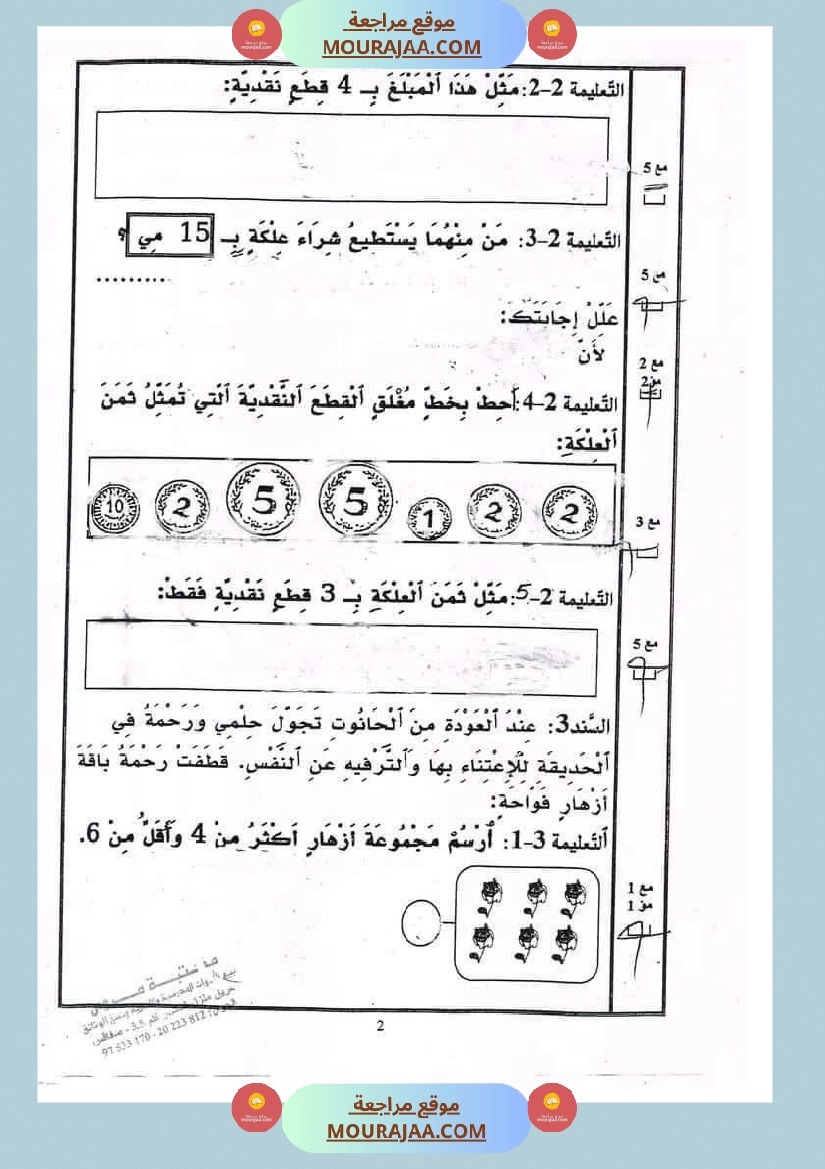 موقع مراجعة
MOURAJAA.COM
التّعليمة 2-2: مَثِّلْ هَذَا ٱلْمَبْلَغَ بِـ 4 قِطَعٍ نَقْدِيَّةٍ:
مع 5
التّعليمة 2-3: مَنْ مِنْهُمَا يَسْتَطِيعُ شِرَاءَ عِلْكَةٍ بِـ 15 مِي ؟
..........
مع 5
عَلِّلْ إِجَابَتَكَ:
لأَنَّ
مع 2
مز 2
التّعليمة 2-4: أَحِطْ بِخَطٍّ مُغْلَقٍ ٱلْقِطَعَ ٱلنَّقْدِيَّةَ ٱلَّتِي تُمَثِّلُ ثَمَنَ
ٱلْعِلْكَةِ:
10 2 5 5 1 2 2
مع 3
التّعليمة 2-5: مَثِّلْ ثَمَنَ ٱلْعِلْكَةِ بِـ 3 قِطَعٍ نَقْدِيَّةٍ فَقَطْ:
مع 5
السّند3: عِنْدَ ٱلْعَوْدَةِ مِنَ ٱلْحَانُوتِ تَجَوَّلَ حِلْمِي وَرَحْمَةُ فِي
ٱلْحَدِيقَةِ لِلْاِعْتِنَاءِ بِهَا وَٱلتَّرْفِيهِ عَنِ ٱلنَّفْسِ. قَطَفَتْ رَحْمَةُ بَاقَةَ
أَزْهَارٍ فَوَّاحَةٍ:
ٱلتّعليمة 3-1: أُرْسُمْ مَجْمُوعَةَ أَزْهَارٍ أَكْثَرُ مِنْ 4 وَأَقَلُّ مِنْ 6.
مع 1
مز 1
2
موقع مراجعة
MOURAJAA.COM